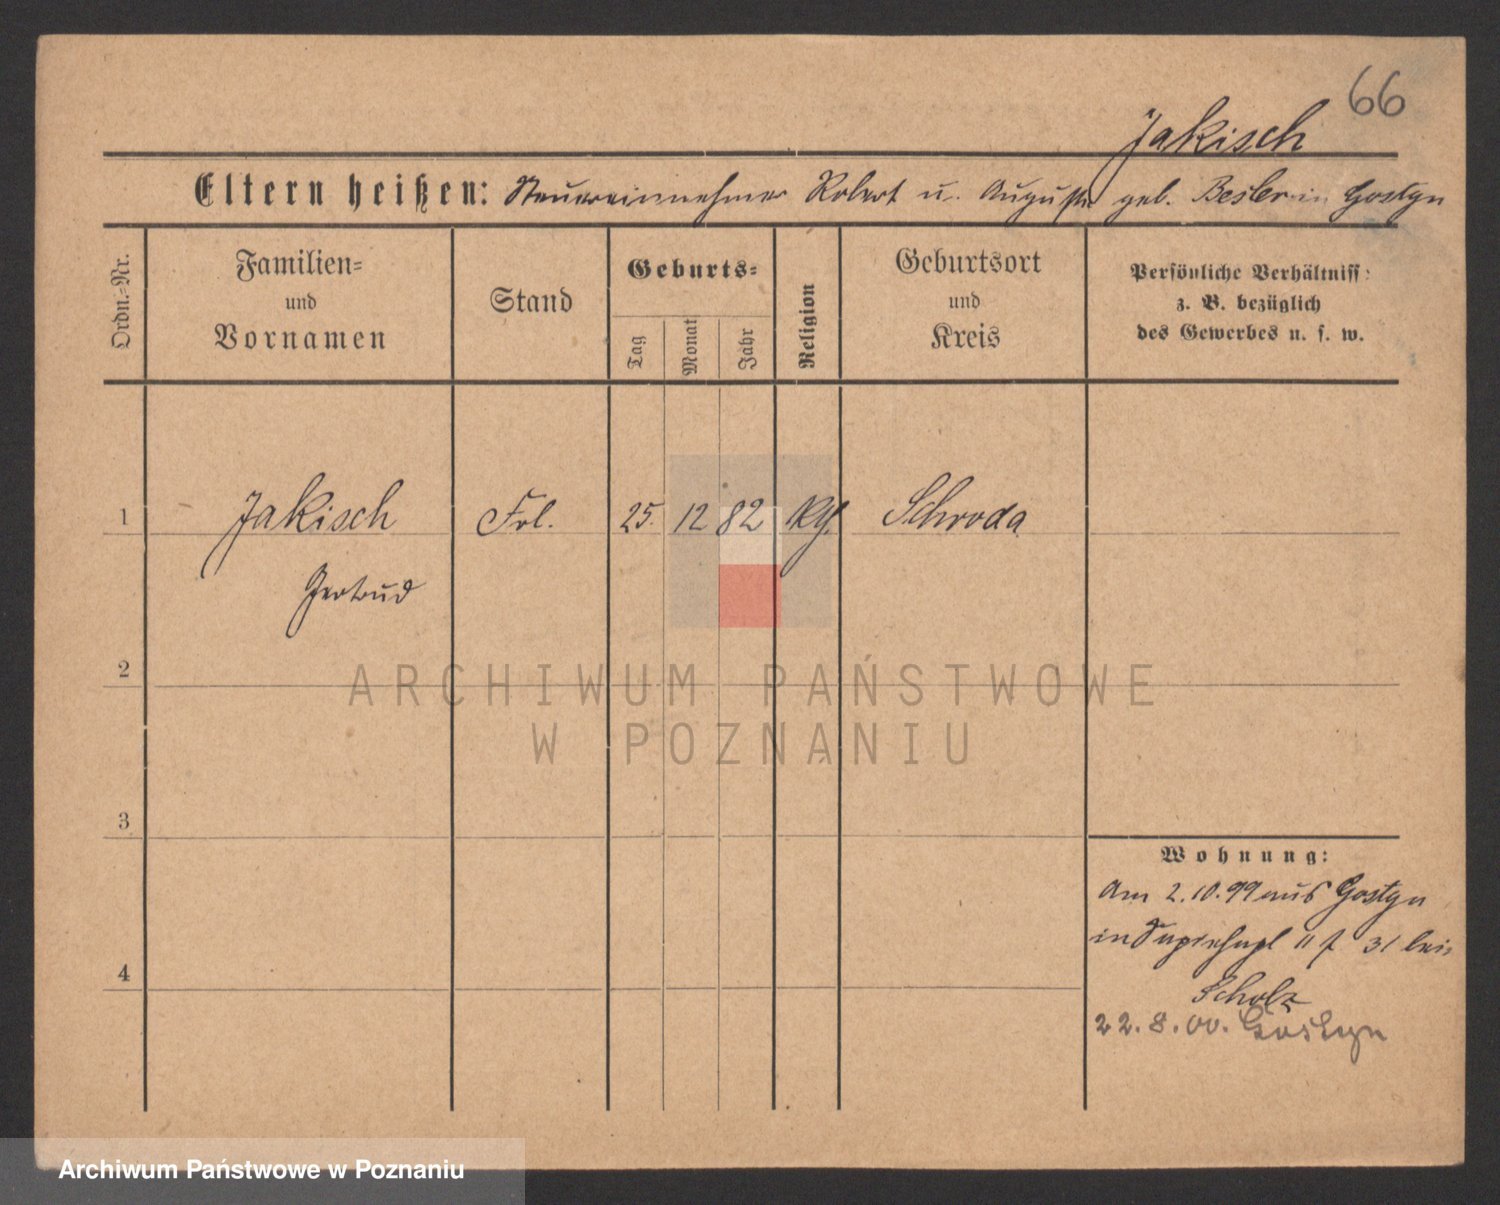 66
Jakisch
Eltern heißen: Steuereinnehmer Robert u. Auguste geb. Besler in Gostyn
Ordn.-Nr.
Familien-
und
Vornamen
Stand
Geburts-
Tag
Monat
Jahr
Religion
Geburtsort
und
Kreis
Persönliche Verhältniss
z. B. bezüglich
des Gewerbes u. s. w.
1 Jakisch Frl. 25. 12 82 Schroda
Gertrud
2
ARCHIWUM PAŃSTWOWE
W POZNANIU
3
Wohnung:
Am 2.10.99 aus Gostyn
in 11 31 bei
4
Scholz
22.8.00. Gostyn
Archiwum Państwowe w Poznaniu